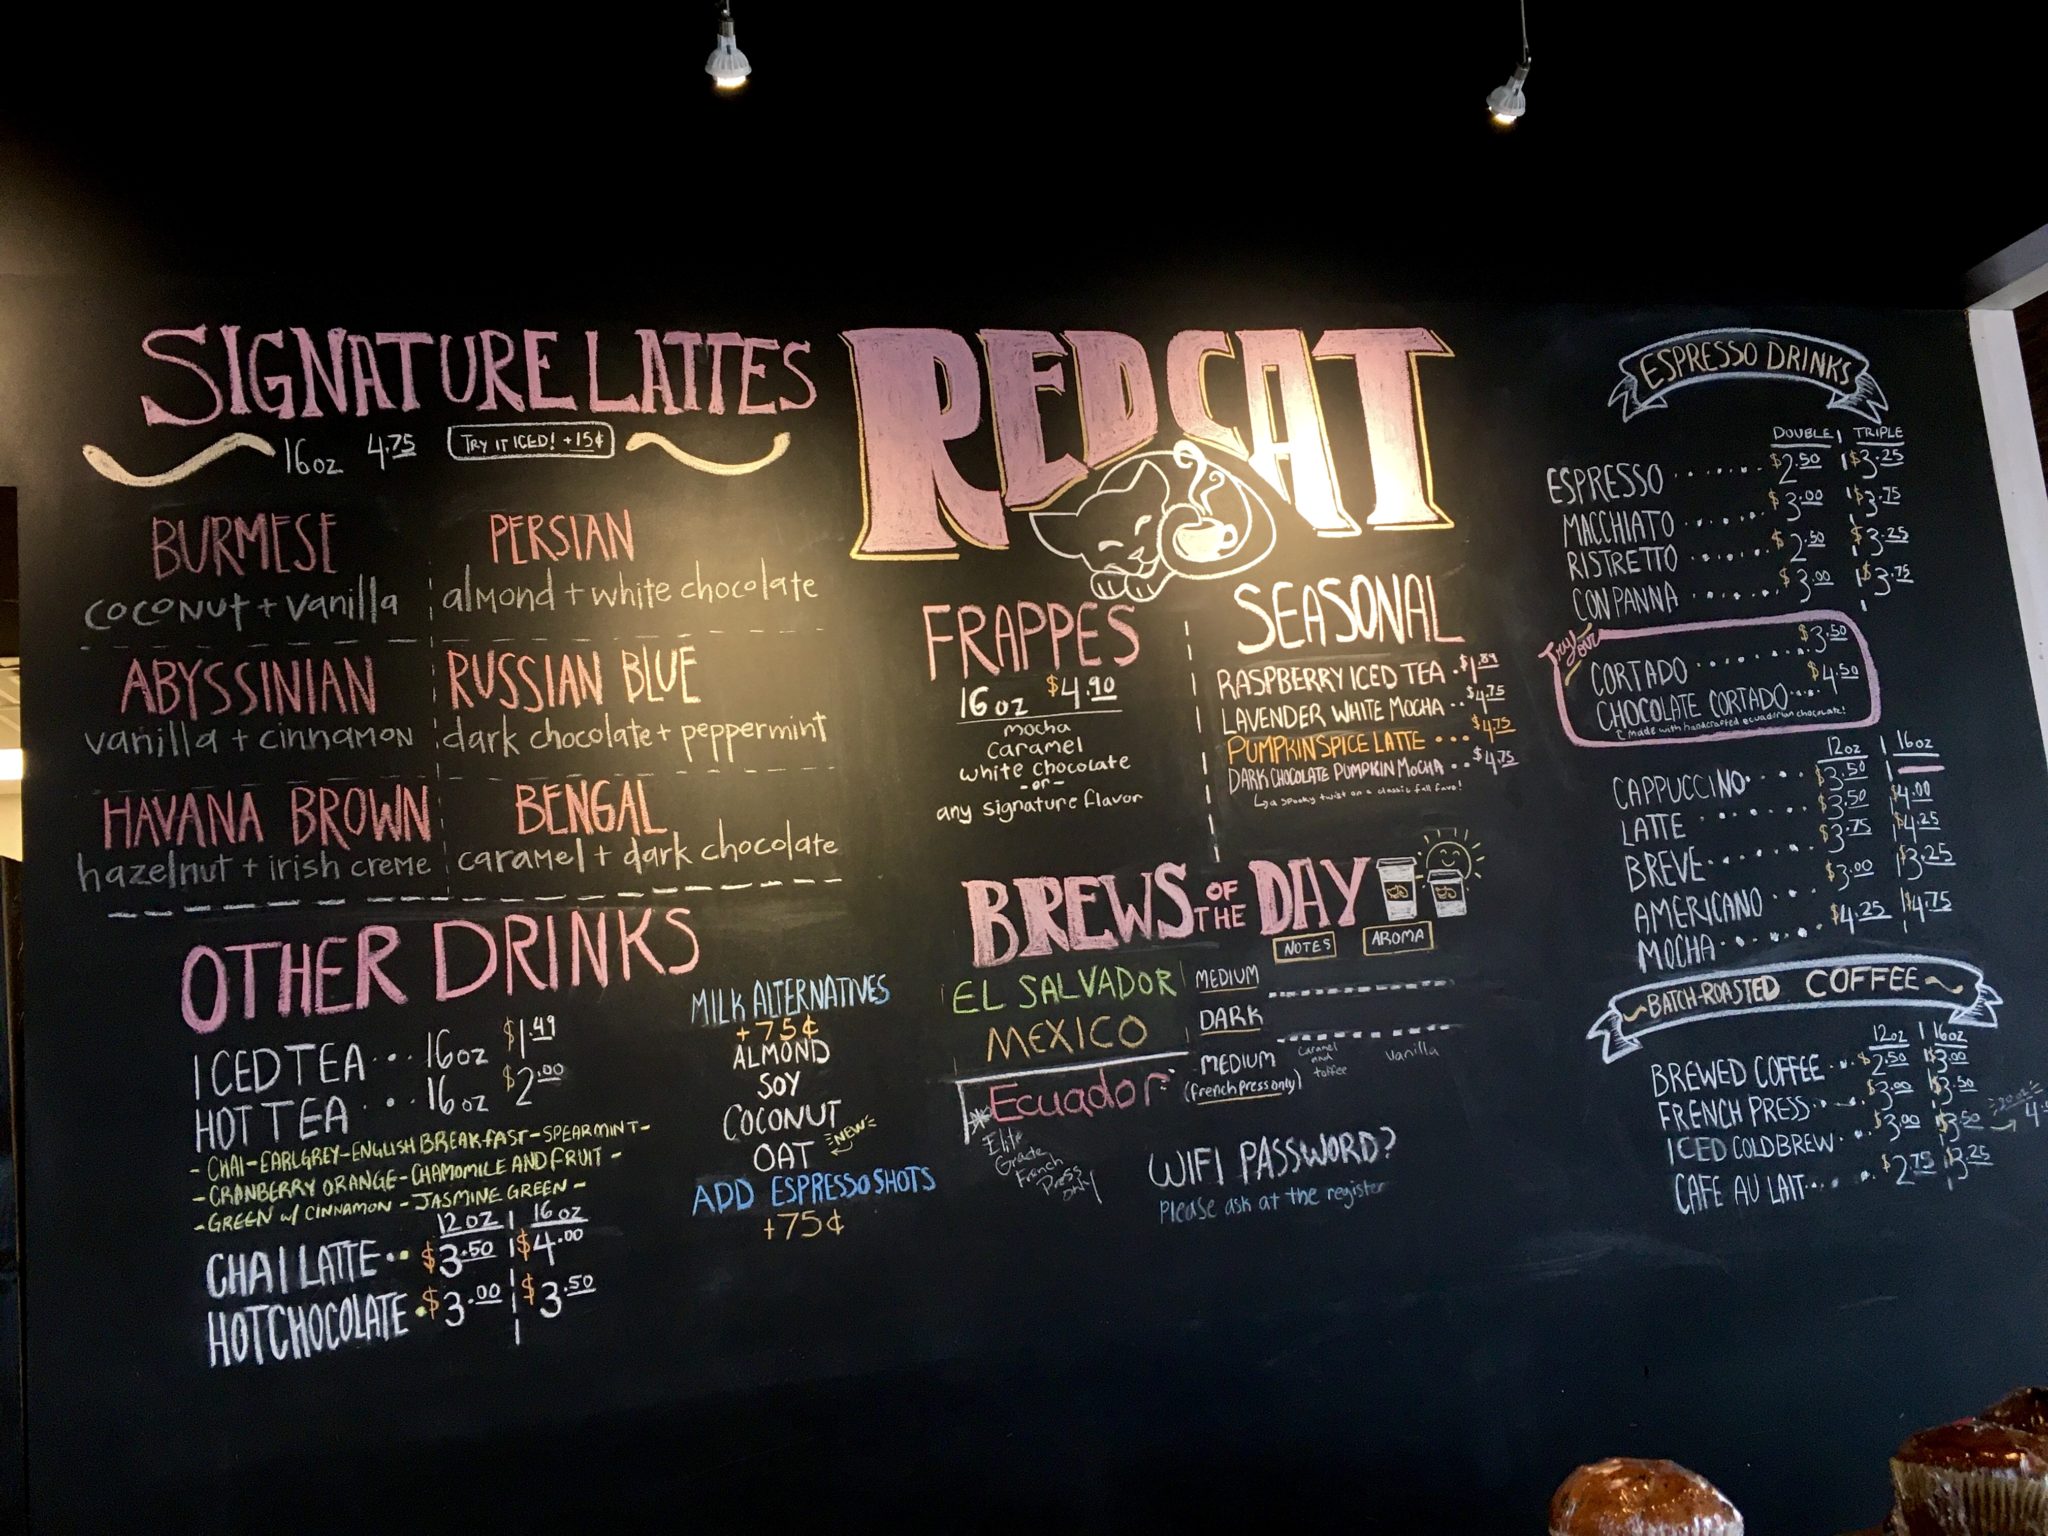 SIGNATURE LATTES
16oz 4.75 TRY IT ICED! +15¢
BURMESE
coconut + vanilla
PERSIAN
almond + white chocolate
ABYSSINIAN
vanilla + cinnamon
RUSSIAN BLUE
dark chocolate + peppermint
HAVANA BROWN
hazelnut + irish creme
BENGAL
caramel + dark chocolate
OTHER DRINKS
ICED TEA... 16oz $1.49
HOT TEA... 16oz $2.00
- CHAI - EARL GREY - ENGLISH BREAKFAST - SPEARMINT -
- CRANBERRY ORANGE - CHAMOMILE AND FRUIT -
- GREEN w/ CINNAMON - JASMINE GREEN -
12oz | 16oz
CHAI LATTE.. $3.50 | $4.00
HOT CHOCOLATE . $3.00 | $3.50
MILK ALTERNATIVES
+75¢
ALMOND
SOY
COCONUT
OAT NEW
ADD ESPRESSO SHOTS
+75¢
RED CAT
FRAPPES
16oz $4.90
mocha
caramel
white chocolate
-or-
any signature flavor
SEASONAL
RASPBERRY ICED TEA . $1.89
LAVENDER WHITE MOCHA .. $4.75
PUMPKIN SPICE LATTE ... $4.75
DARK CHOCOLATE PUMPKIN MOCHA .. $4.75
a spooky twist on a classic fall fave!
BREWS OF THE DAY
NOTES AROMA
EL SALVADOR MEDIUM
MEXICO DARK
Ecuador MEDIUM (french press only) caramel and toffee vanilla
Elite
Grade
French
Press
only
WIFI PASSWORD?
Please ask at the register
ESPRESSO DRINKS
DOUBLE | TRIPLE
ESPRESSO ...... $2.50 | $3.25
MACCHIATO ...... $3.00 | $3.75
RISTRETTO ...... $2.50 | $3.25
CON PANNA ...... $3.00 | $3.75
Try our
CORTADO ........ $3.50
CHOCOLATE CORTADO... $4.50
made with handcrafted ecuadorian chocolate!
12oz | 16oz
CAPPUCCINO.... $3.50
LATTE ...... $3.50 $4.00
BREVE...... $3.75 $4.25
AMERICANO .... $3.00 $3.25
MOCHA...... $4.25 $4.75
BATCH-ROASTED COFFEE
12oz | 16oz
BREWED COFFEE .. $2.50 $3.00
FRENCH PRESS.... $3.00 $3.50
ICED COLD BREW... $3.00 $3.50 20oz
CAFE AU LAIT.... $2.75 $3.25